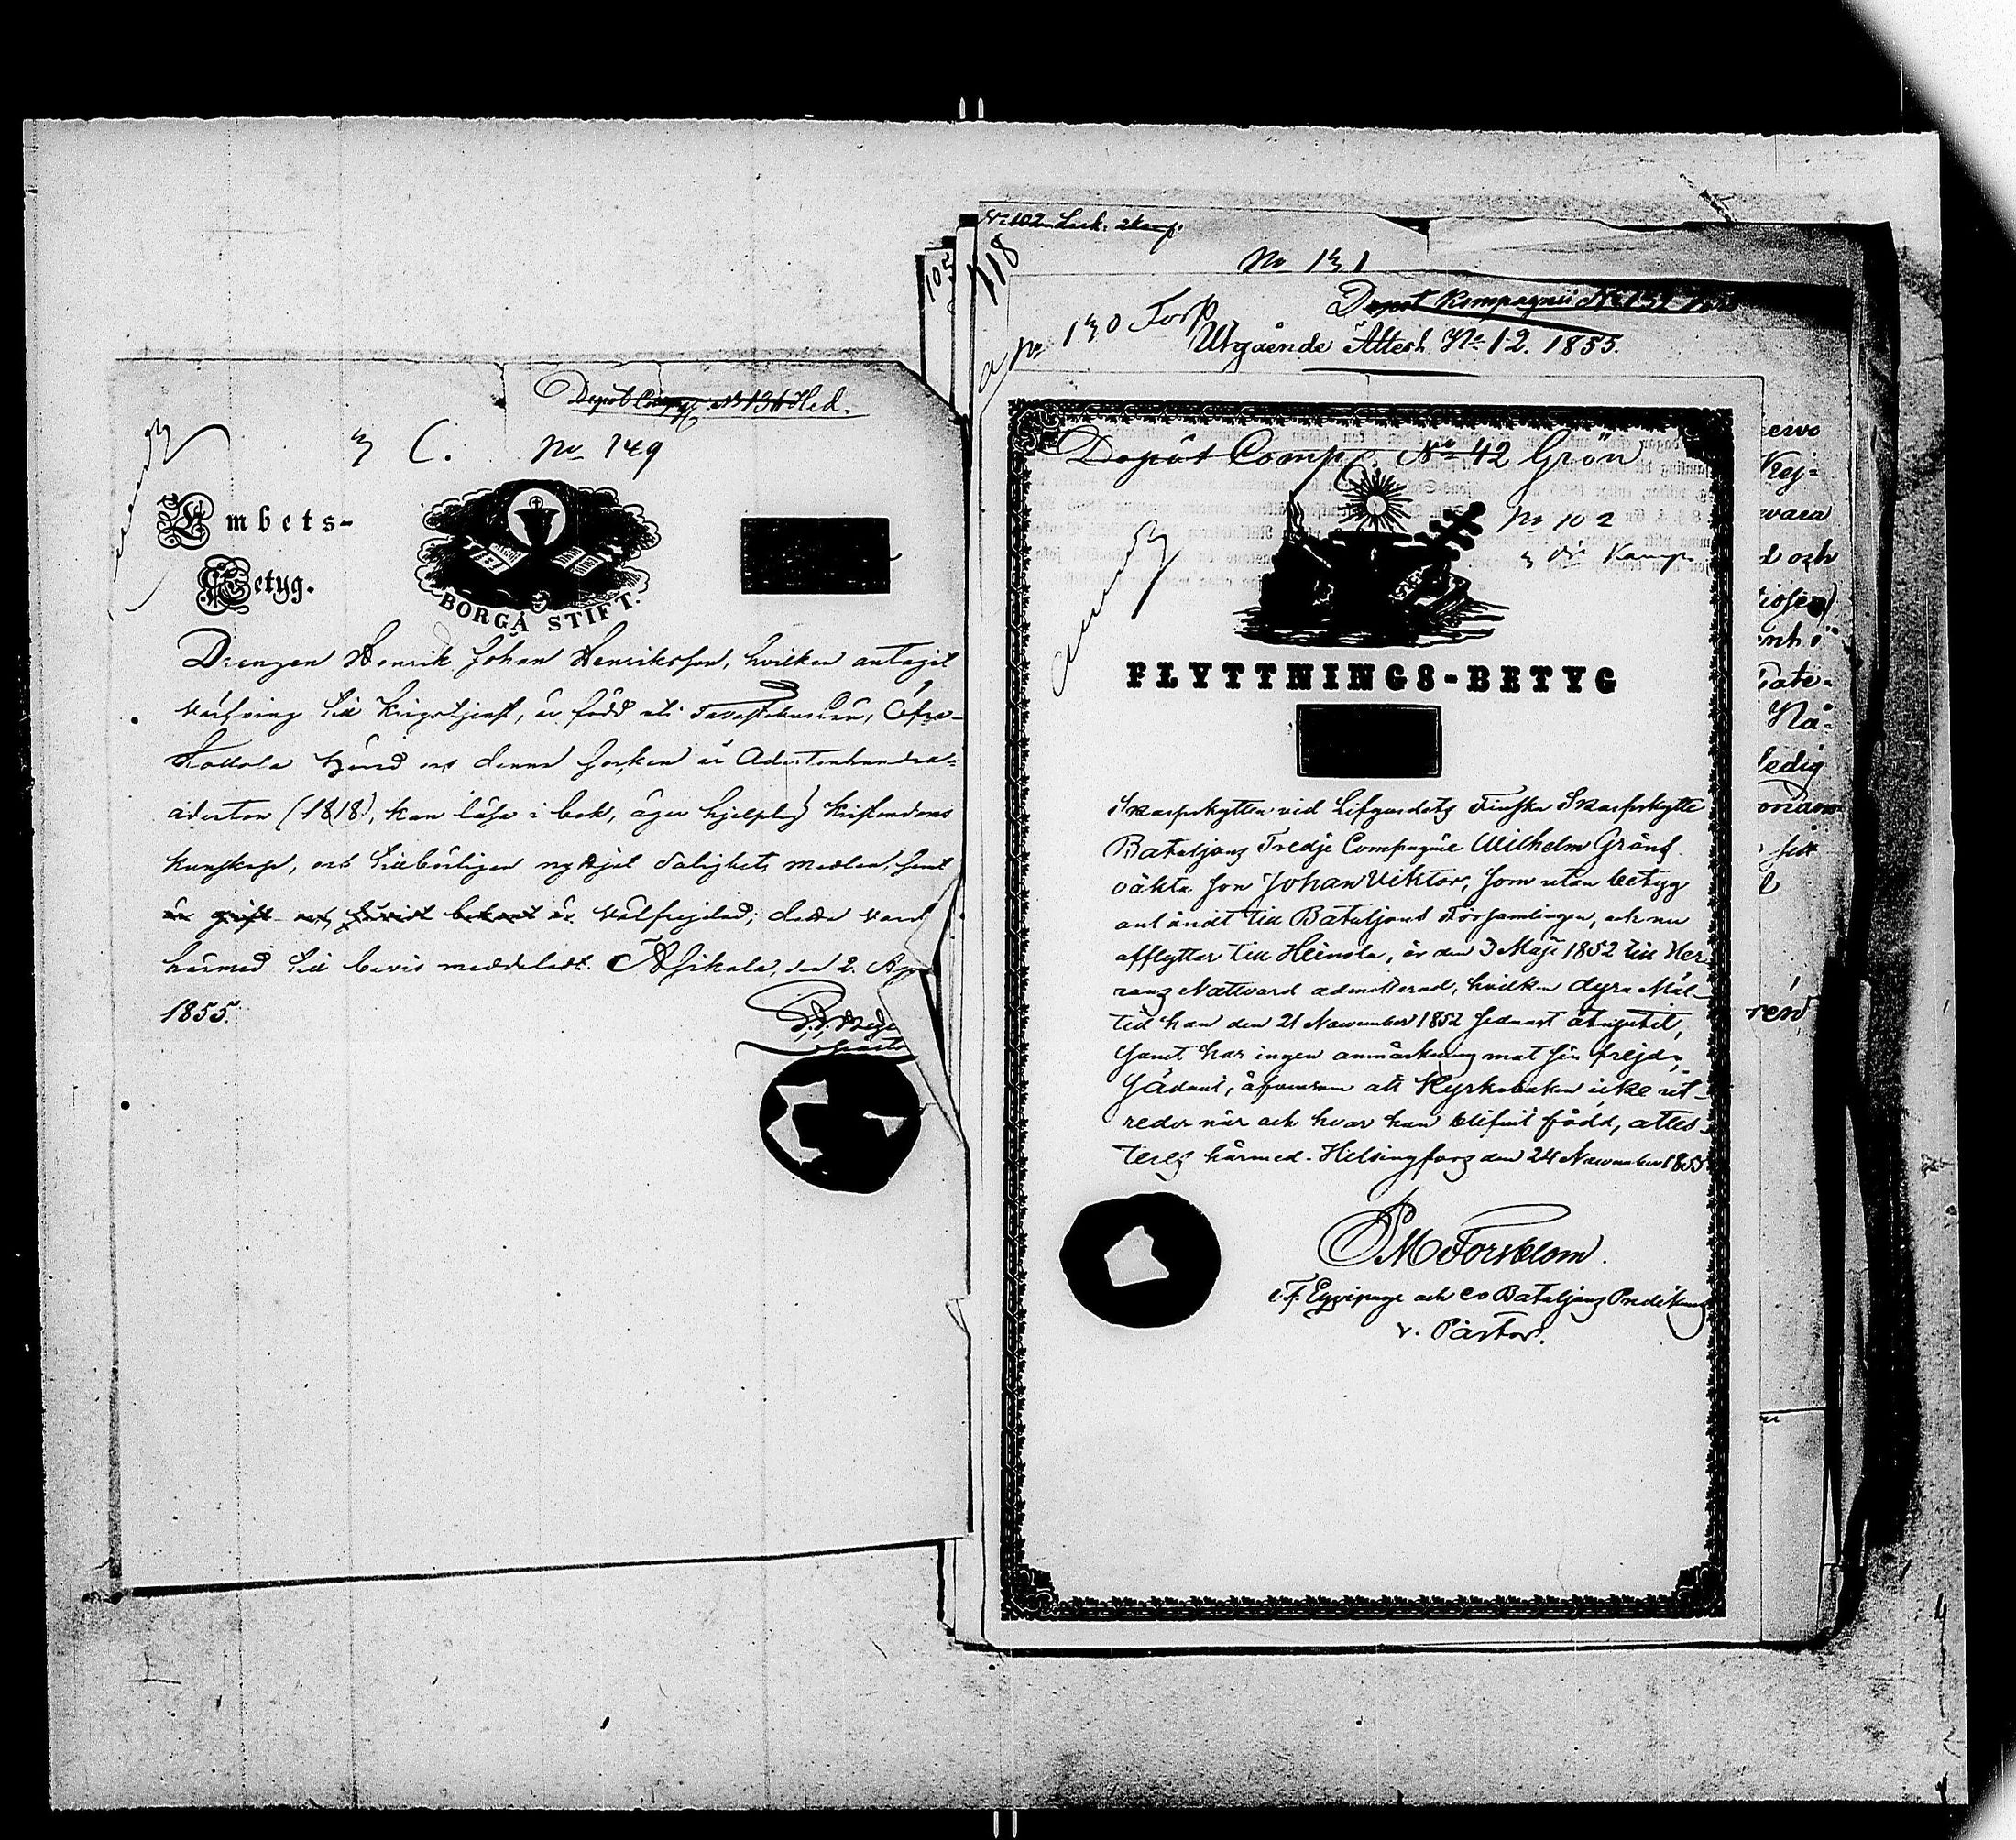 Depôt Comp. No 136 Hed.
3 C. No 149
Embets-
Betyg.
BORGÅ STIFT.
Drengen Henrik Johan Henriksson, hvilken antagit
värfving till Krigstjenst, är född uti Tavastehus län,
Hollola härad och denna socken år Adertonhundra-
aderton (1818), kan läsa i bok, äger hjelplig Kristendoms
kunskap, och tillbörligen nyttjat Salighets medlen, samt
är välfrejdad; detta varder
härmed till bevis meddeladt. Asikala, den 2. Apr
1855.
No 102 2 Komp.
105
118
No 131
Depot Kompagnii No 131
a No 130 Torp
Utgående Attest No 12. 1855.
Depôt Comp. No 42 Grön
No 102
3 die Komp.
FLYTTNINGS-BETYG
Skarpskytten vid Lifgardets Finska Skarpskytte
Bataljons Tredje Compagnie Wilhelm Gröns
oäkta son Johan Viktor, som utan betyg
anländt till Bataljons Församlingen, och nu
afflyttar till Heinola, är den 3 Maji 1852 till Her-
rans Nattvard admitterad, hvilken dyra Mål-
tid han den 21 November 1852 sednast åtnjutit,
samt har ingen anmärkning mot sin frejd;
Sådant, äfvensom att Kyrkoboken icke ut-
reder när och hvar han blifvit född, attes-
teres härmed. Helsingfors den 24 November 1855
P M Forsblom.
t.f. Eqvipage och eo Bataljons Predikant
v. Pastor.